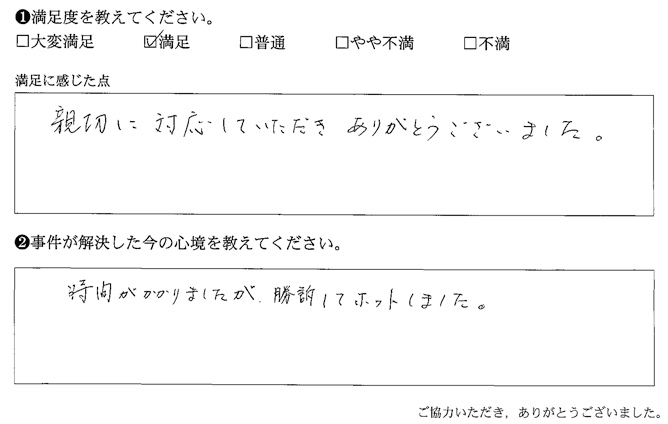 ❶満足度を教えてください。
□大変満足 ☑満足 □普通 □やや不満 □不満
満足に感じた点
親切に対応していただきありがとうございました。
❷事件が解決した今の心境を教えてください。
時間がかかりましたが、勝訴してホットしました。
ご協力いただき，ありがとうございました。